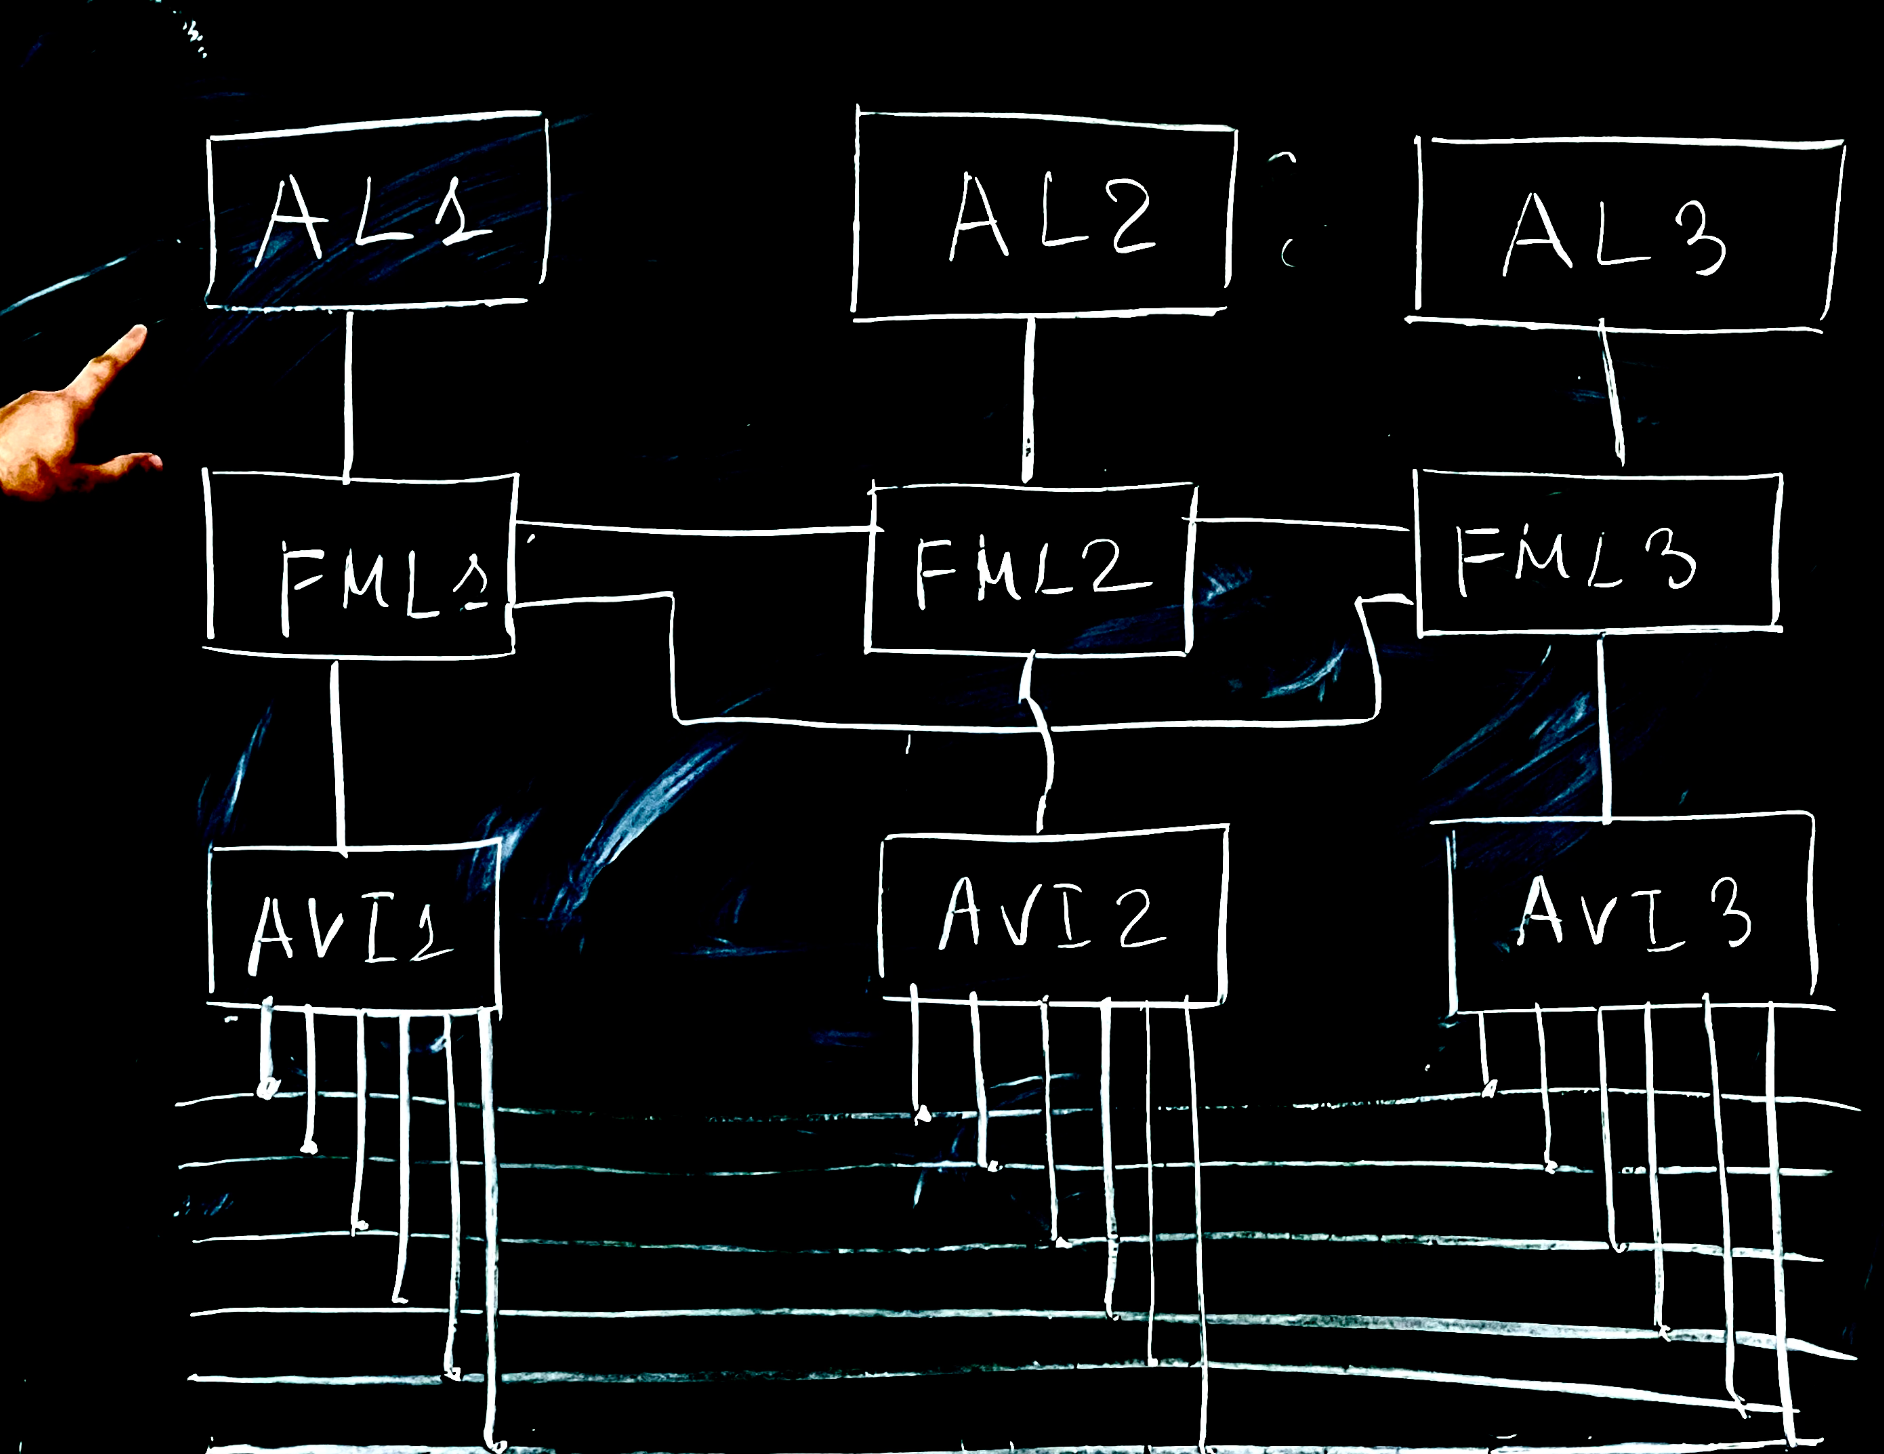 AL1 AL2 AL3
FML1 FML2 FML3
AVI1 AVI2 AVI3